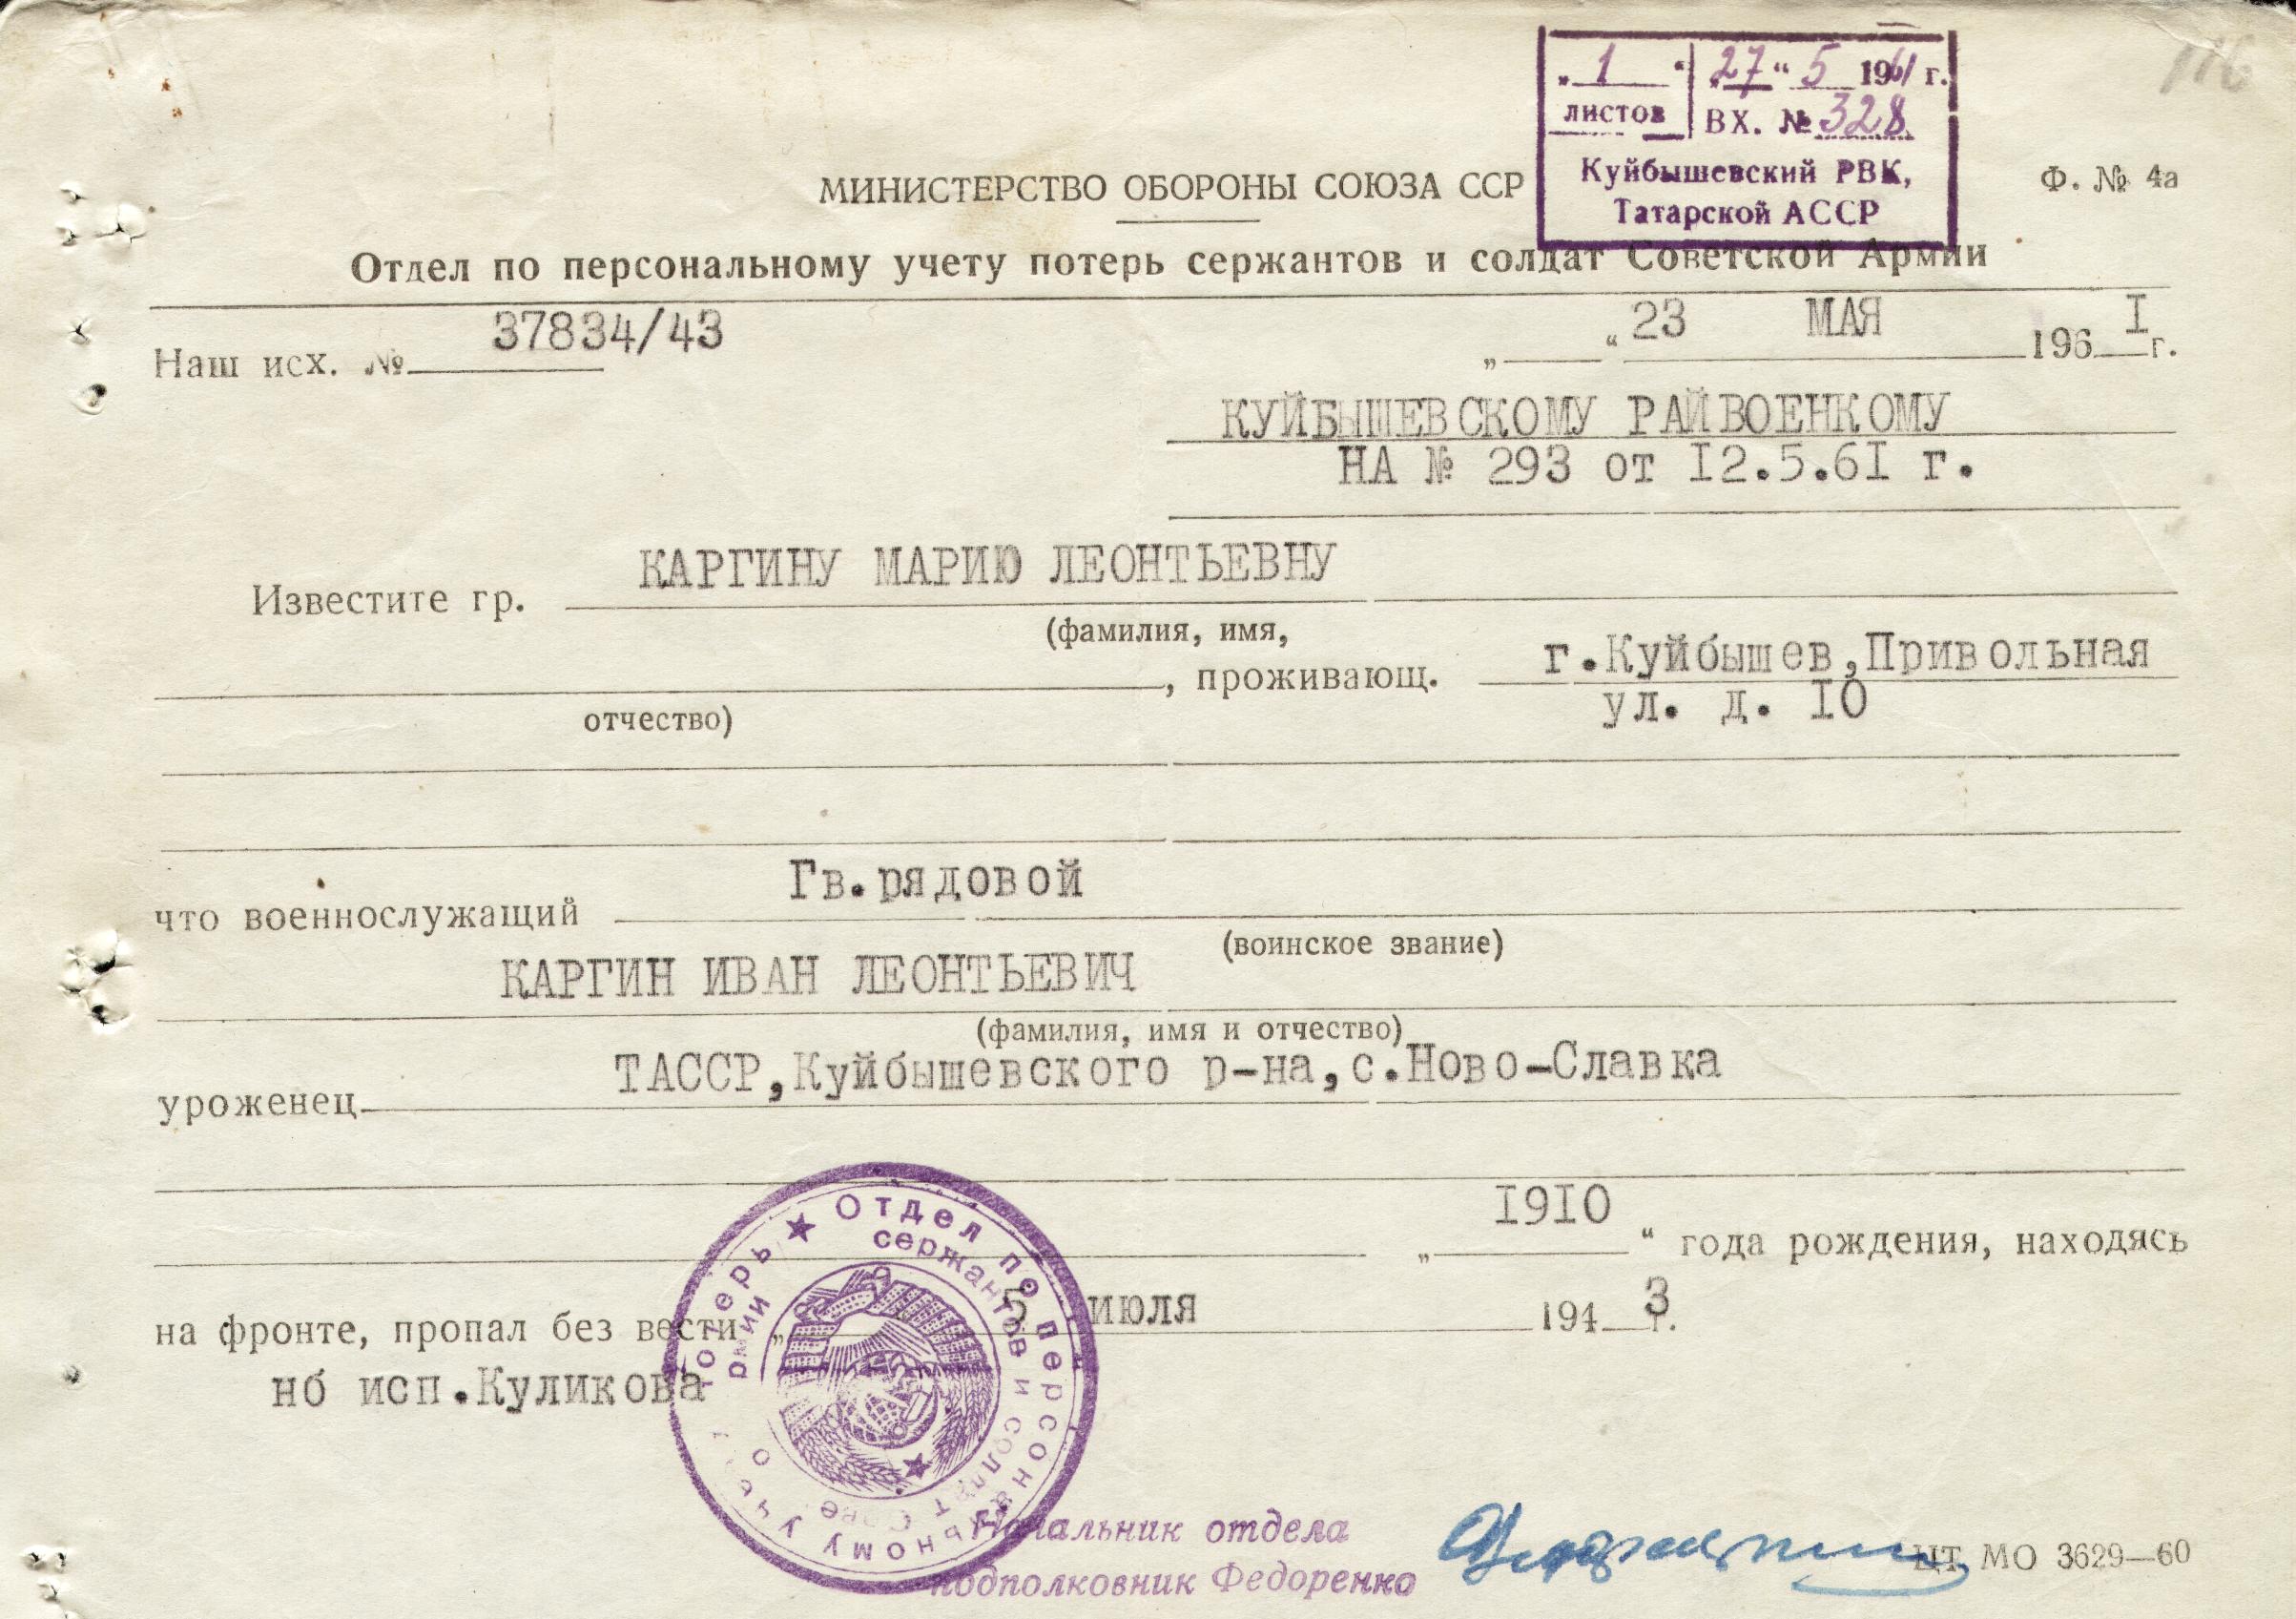 116
„1“ „27“ 5 1961 г.
листов ВХ. № 328
Куйбышевский РВК,
Татарской АССР
МИНИСТЕРСТВО ОБОРОНЫ СОЮЗА ССР
Ф. № 4а
Отдел по персональному учету потерь сержантов и солдат Советской Армии
Наш исх. № 37834/43 „ “ 23 МАЯ 196 I г.
КУЙБЫШЕВСКОМУ РАЙВОЕНКОМУ
НА № 293 от I2.5.6I г.
Известите гр. КАРГИНУ МАРИЮ ЛЕОНТЬЕВНУ
(фамилия, имя,
, проживающ. г.Куйбышев,Привольная
отчество) ул. д. IO
что военнослужащий Гв.рядовой
(воинское звание)
КАРГИН ИВАН ЛЕОНТЬЕВИЧ
(фамилия, имя и отчество)
уроженец ТАССР,Куйбышевского р-на,с.Ново-Славка
„ I9IO “ года рождения, находясь
на фронте, пропал без вести „ 5 июля 194 3 г.
нб исп.Куликова
Отдел по персональному учету потерь
сержантов и солдат Сове рмии
Начальник отдела
подполковник Федоренко
ЦТ МО 3629—60